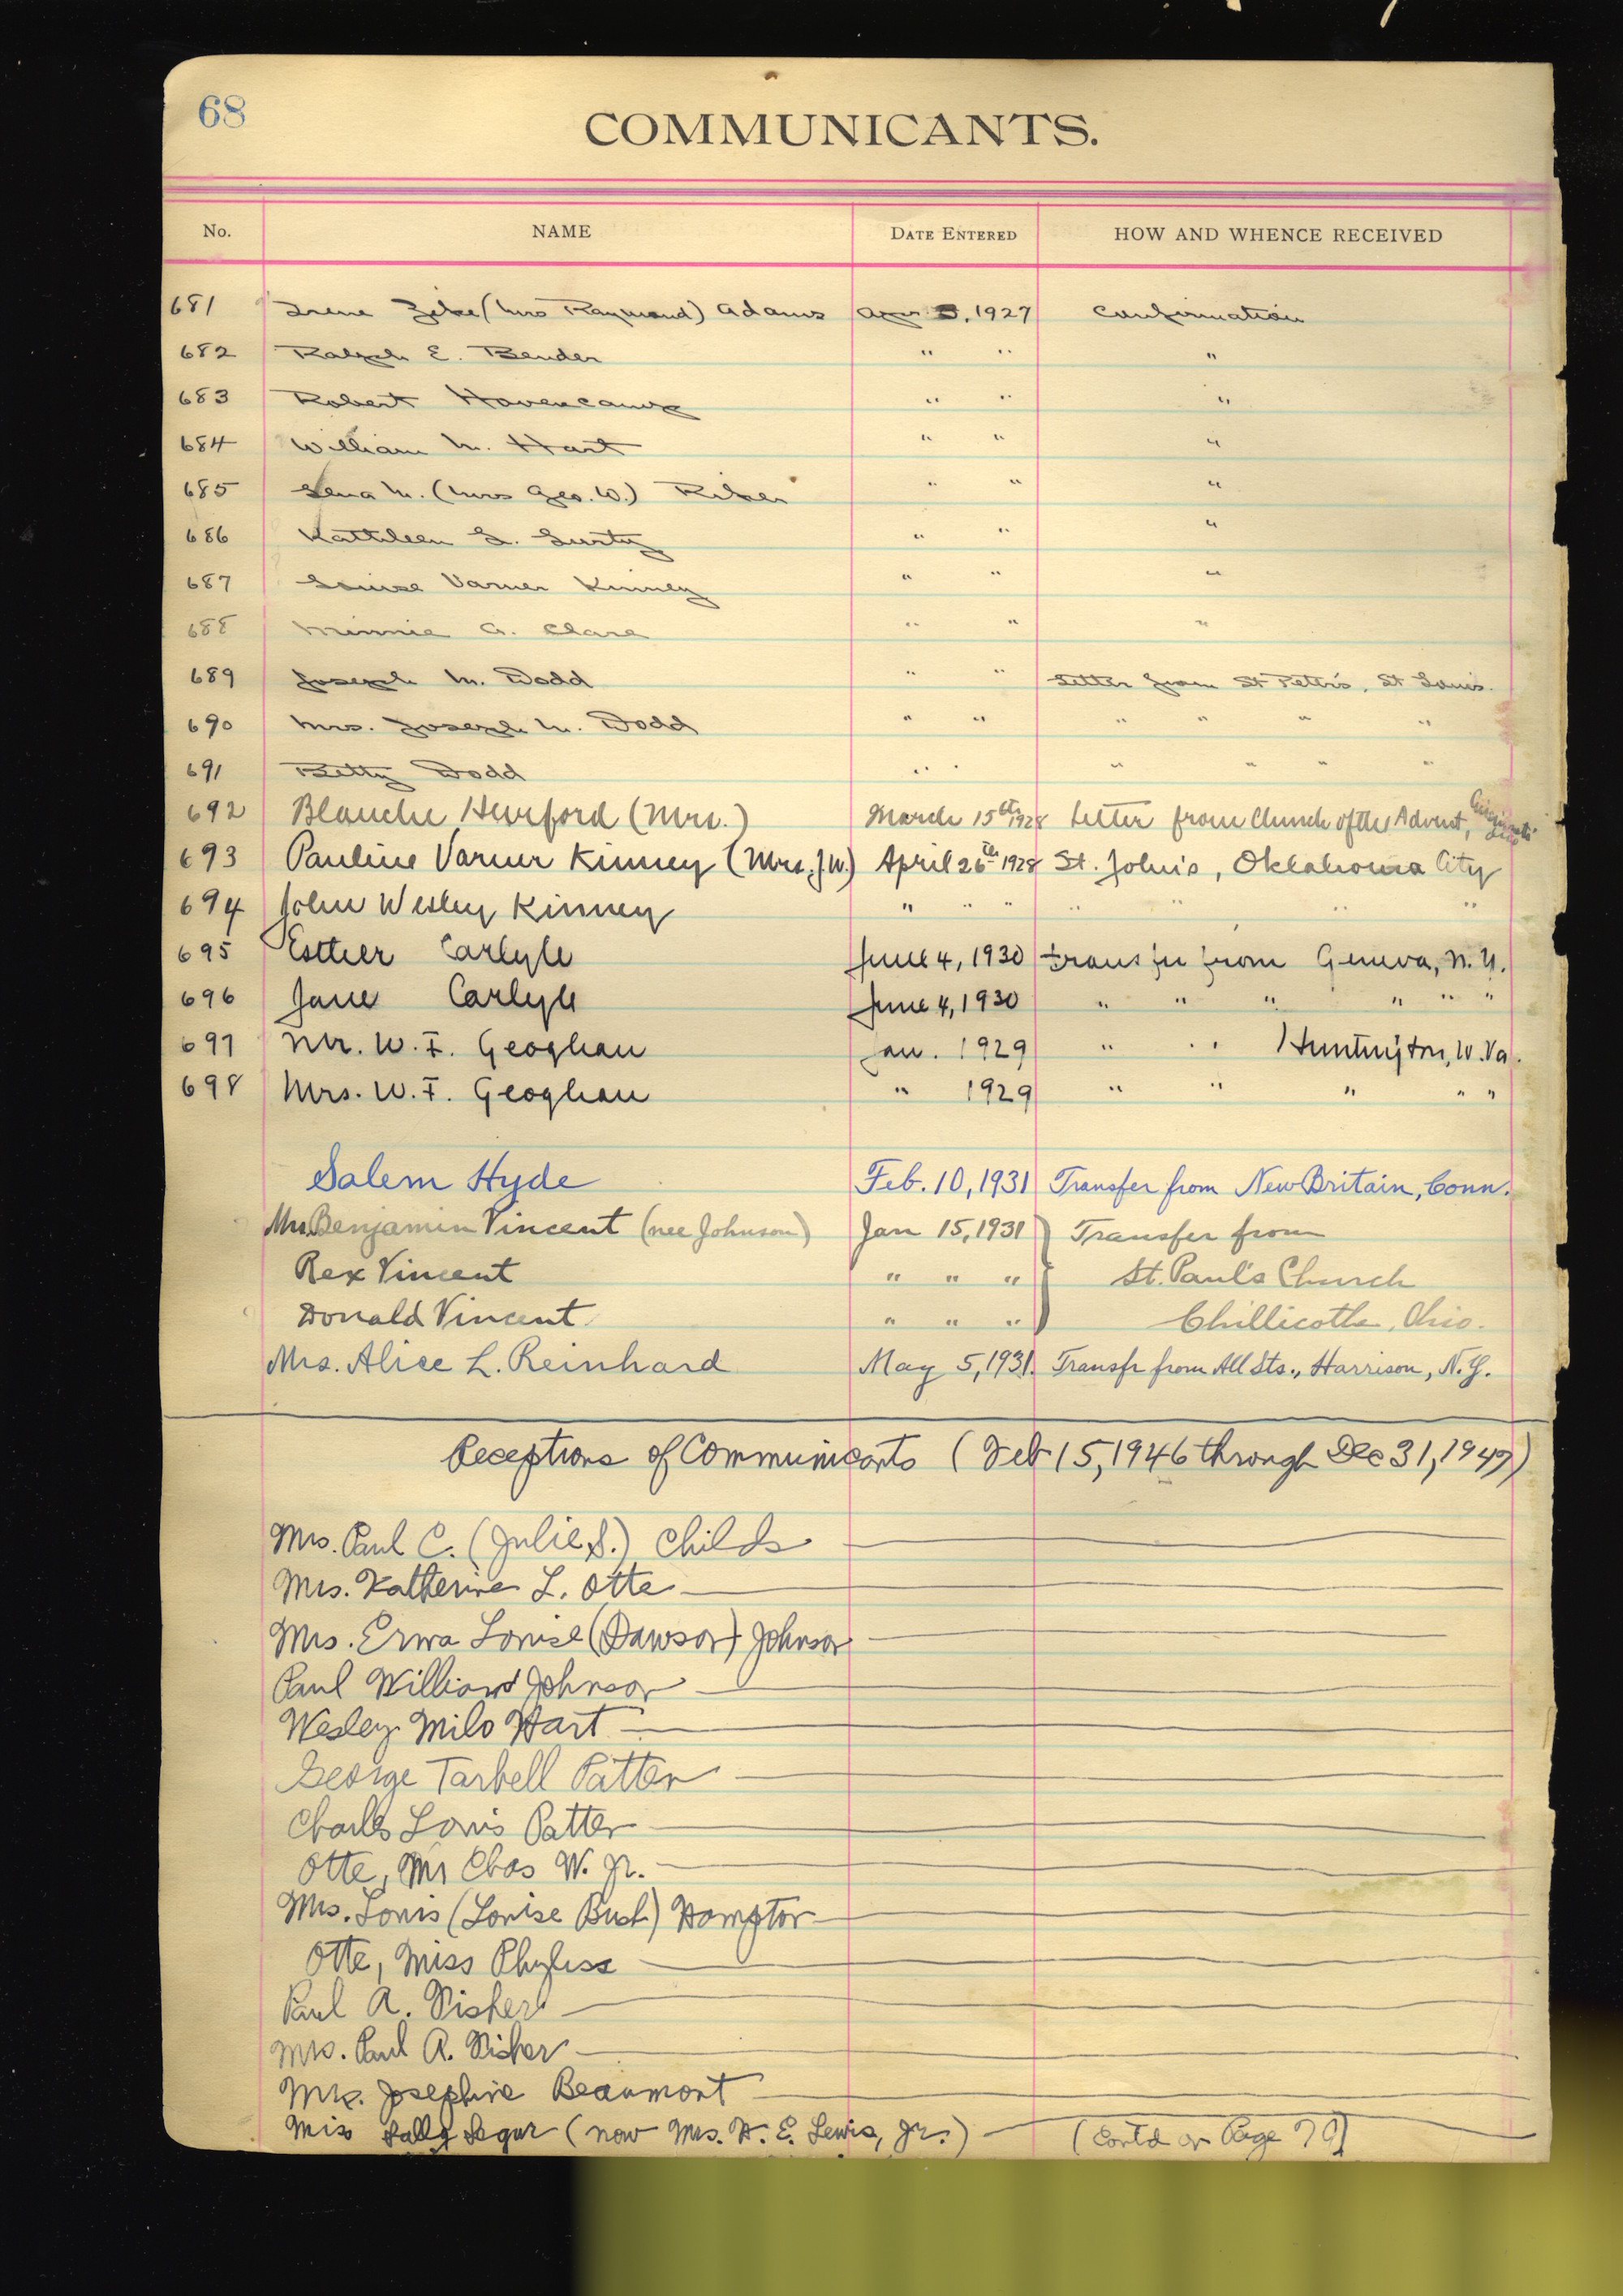 68
COMMUNICANTS.
No. NAME DATE ENTERED HOW AND WHENCE RECEIVED
681 Irene Zeke (Mrs Raymond) Adams Apr 3, 1927 Confirmation
682 Ralph E. Bender " " "
683 Robert Havencamp " " "
684 William M. Hart " " "
685 Lena M. (Mrs Geo. W.) Riker " " "
686 Kathleen L. Lurty " " "
687 Louise Varner Kinney " " "
688 Minnie A. Clare " " "
689 Joseph M. Dodd " " Letter from St Peter's, St Louis.
690 Mrs. Joseph M. Dodd " " " " " "
691 Betty Dodd " " " " " "
692 Blanche Hurford (Mrs.) March 15th 1928 Letter from Church of the Advent, Cincinnati
693 Pauline Varner Kinney (Mrs. J.W.) April 26th 1928 St. John's, Oklahoma City
694 John Wesley Kinney " " " " " " "
695 Esther Carlyle June 4, 1930 transfer from Geneva, N.Y.
696 Jane Carlyle June 4, 1930 " " " " " "
697 Mr. W. F. Geoghan Jan. 1929 " " Huntington, W. Va.
698 Mrs. W. F. Geoghan " 1929 " " " " "
Salem Hyde Feb. 10, 1931 Transfer from New Britain, Conn.
Mrs. Benjamin Vincent (nee Johnson) Jan 15, 1931 } Transfer from
Rex Vincent " " " St. Paul's Church
Donald Vincent " " " Chillicothe, Ohio.
Mrs. Alice L. Reinhard May 5, 1931. Transfr from All Sts., Harrison, N.Y.
Receptions of Communicants (Feb 15, 1946 through Dec 31, 1949)
Mrs. Paul C. (Julie S.) Childs
Mrs. Katherine L. Otte
Mrs. Erma Louise (Dawson) Johnson
Paul Williard Johnson
Wesley Milo Hart
George Tarbell Patten
Charles Louis Patten
Otte, Mr Chas W. Jr.
Mrs. Louis (Louise Bush) Hampton
Otte, Miss Phyliss
Paul A. Risher
Mrs. Paul A. Risher
Mrs. Josephine Beaumont
Miss Sally Segur (now Mrs. W. E. Lewis, Jr.) (Cont'd on Page 70)